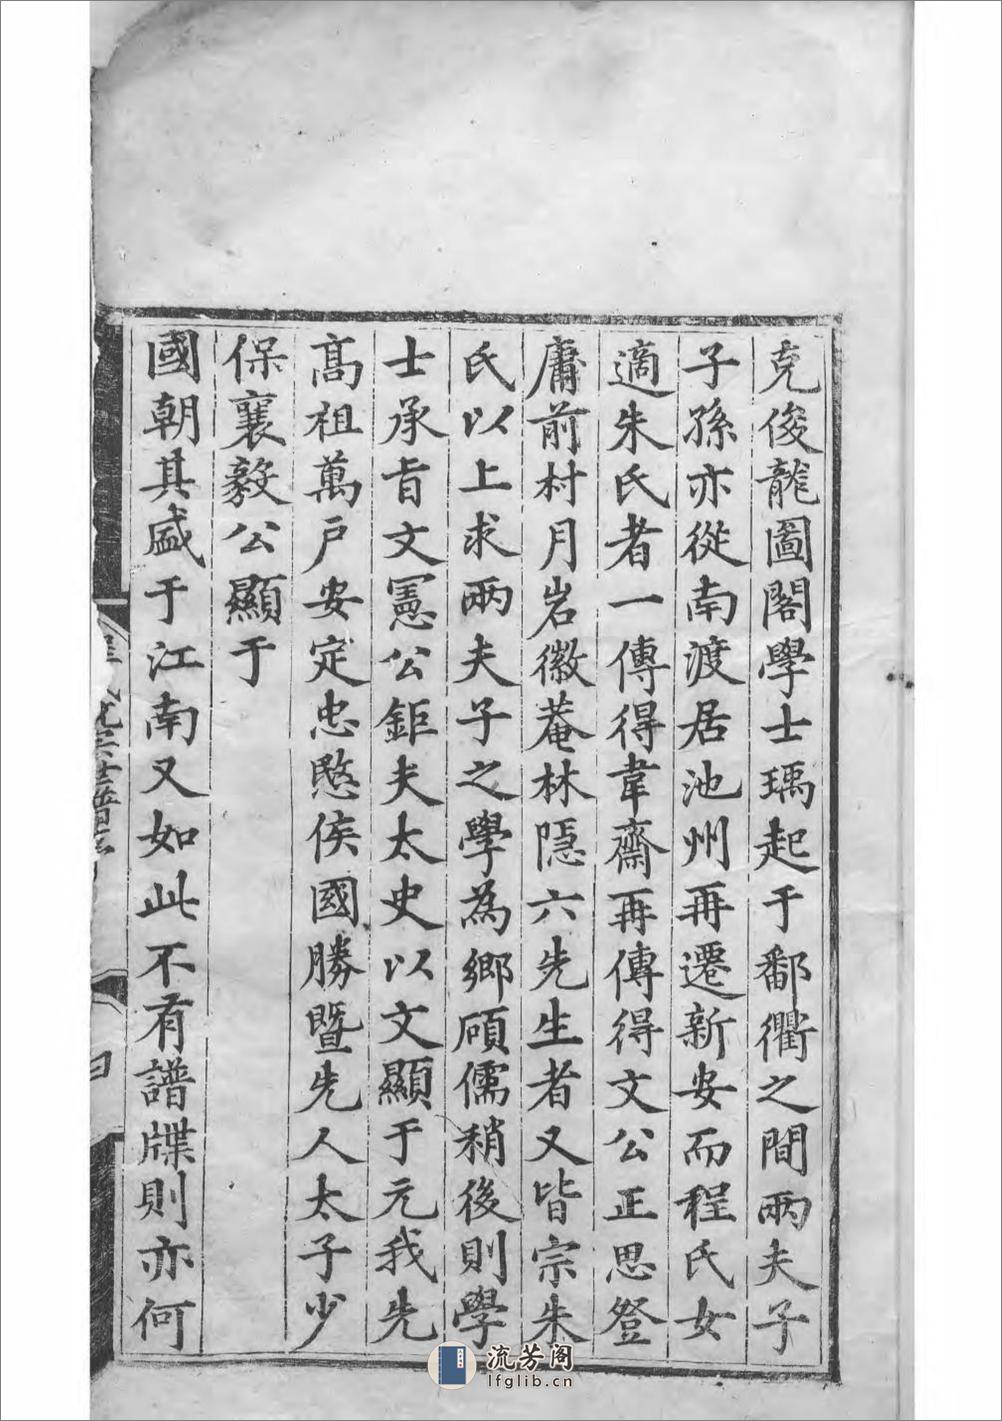 克俊龍圖閣學士瑀起于鄱衢之間兩夫子
子孫亦從南渡居池州再遷新安而程氏女
適朱氏者一傳得韋齋再傳得文公正思登
庸前村月岩徽菴林隱六先生者又皆宗朱
氏以上求兩夫子之學為鄉碩儒稍後則學
士承旨文憲公鉅夫太史以文顯于元我先
高祖萬戶安定忠愍侯國勝暨先人太子少
保襄毅公顯于
國朝其盛于江南又如此不有譜牒則亦何
流芳阁
lfglib.cn